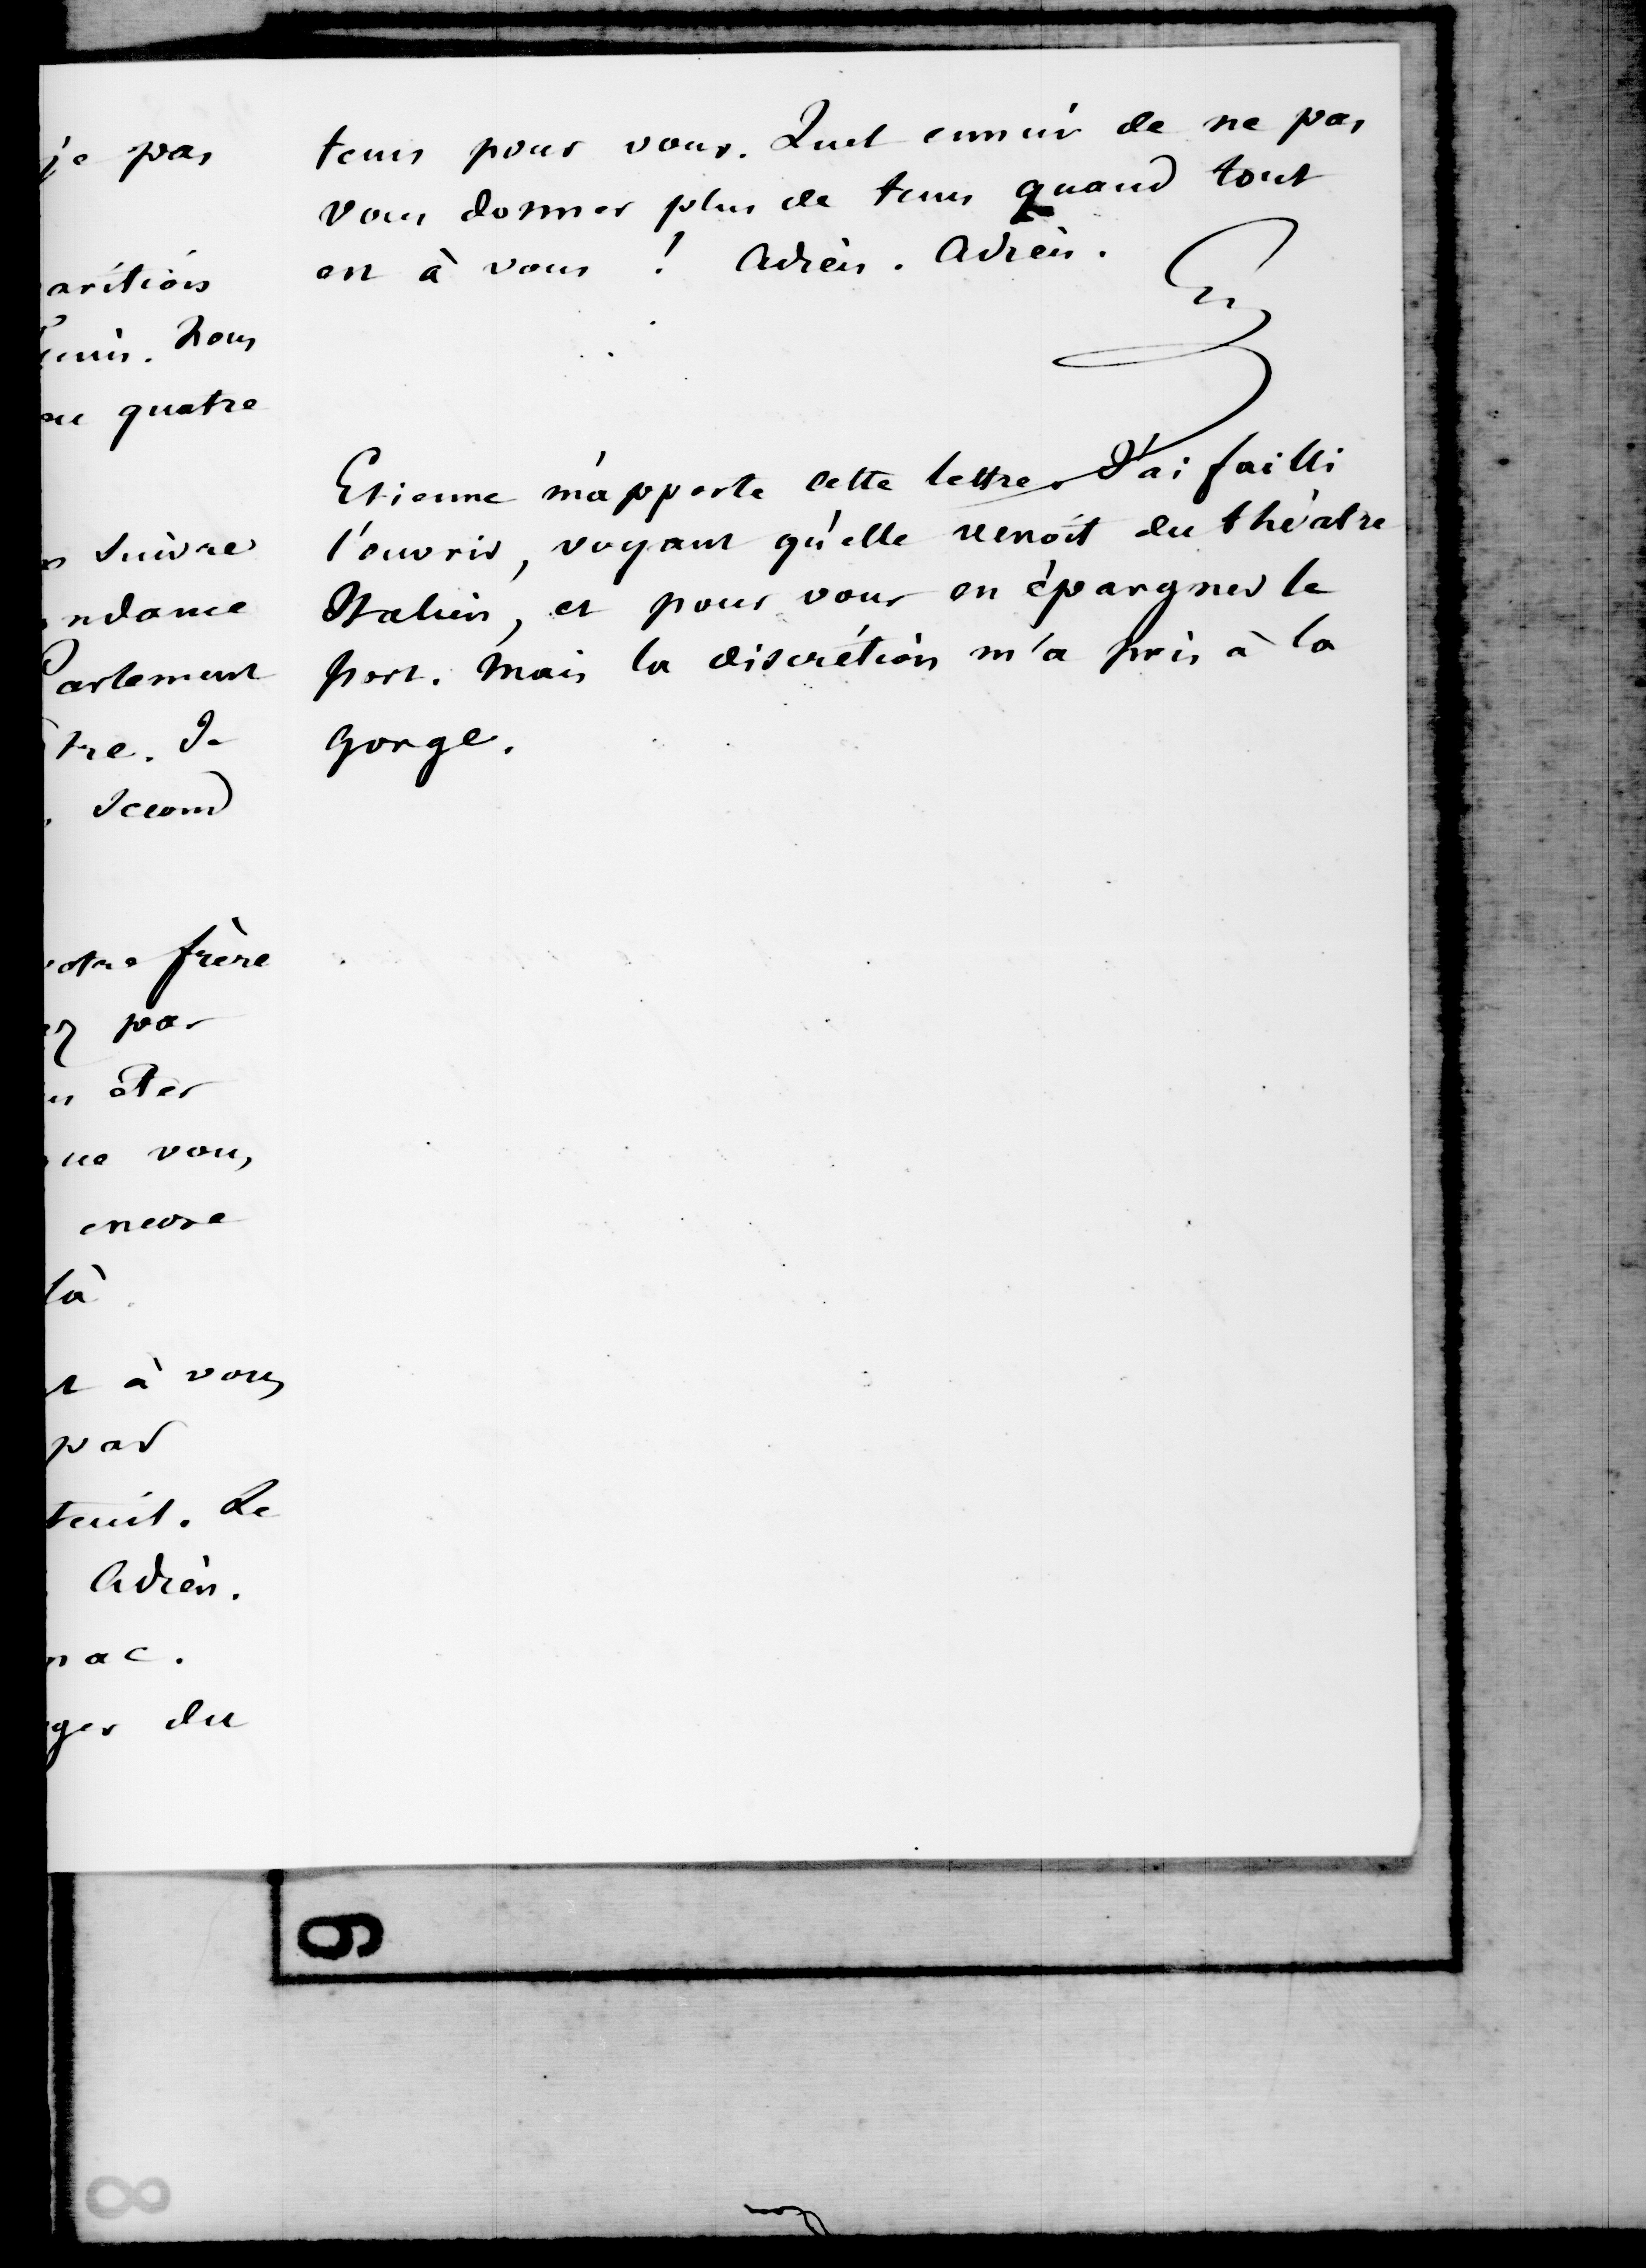 je pas
aritions
Nous
quatre
suivre
ndance
Parlement
tre. Je
second
otre frère
pas
ôter
vous
encore
là
à vous
par
teuil. Le
Adieu.
nac.
ger du
tems pour vous. Quel ennui de ne pas
vous donner plus de tems quand tout
est à vous ! Adieu. Adieu.
G
Etienne m'apporte cette lettre. J'ai failli
l'ouvrir, voyant qu'elle venoit du théatre
Italien, et pour vous en épargner le
port. Mais la discrétion m'a pris à la
gorge.
9
8